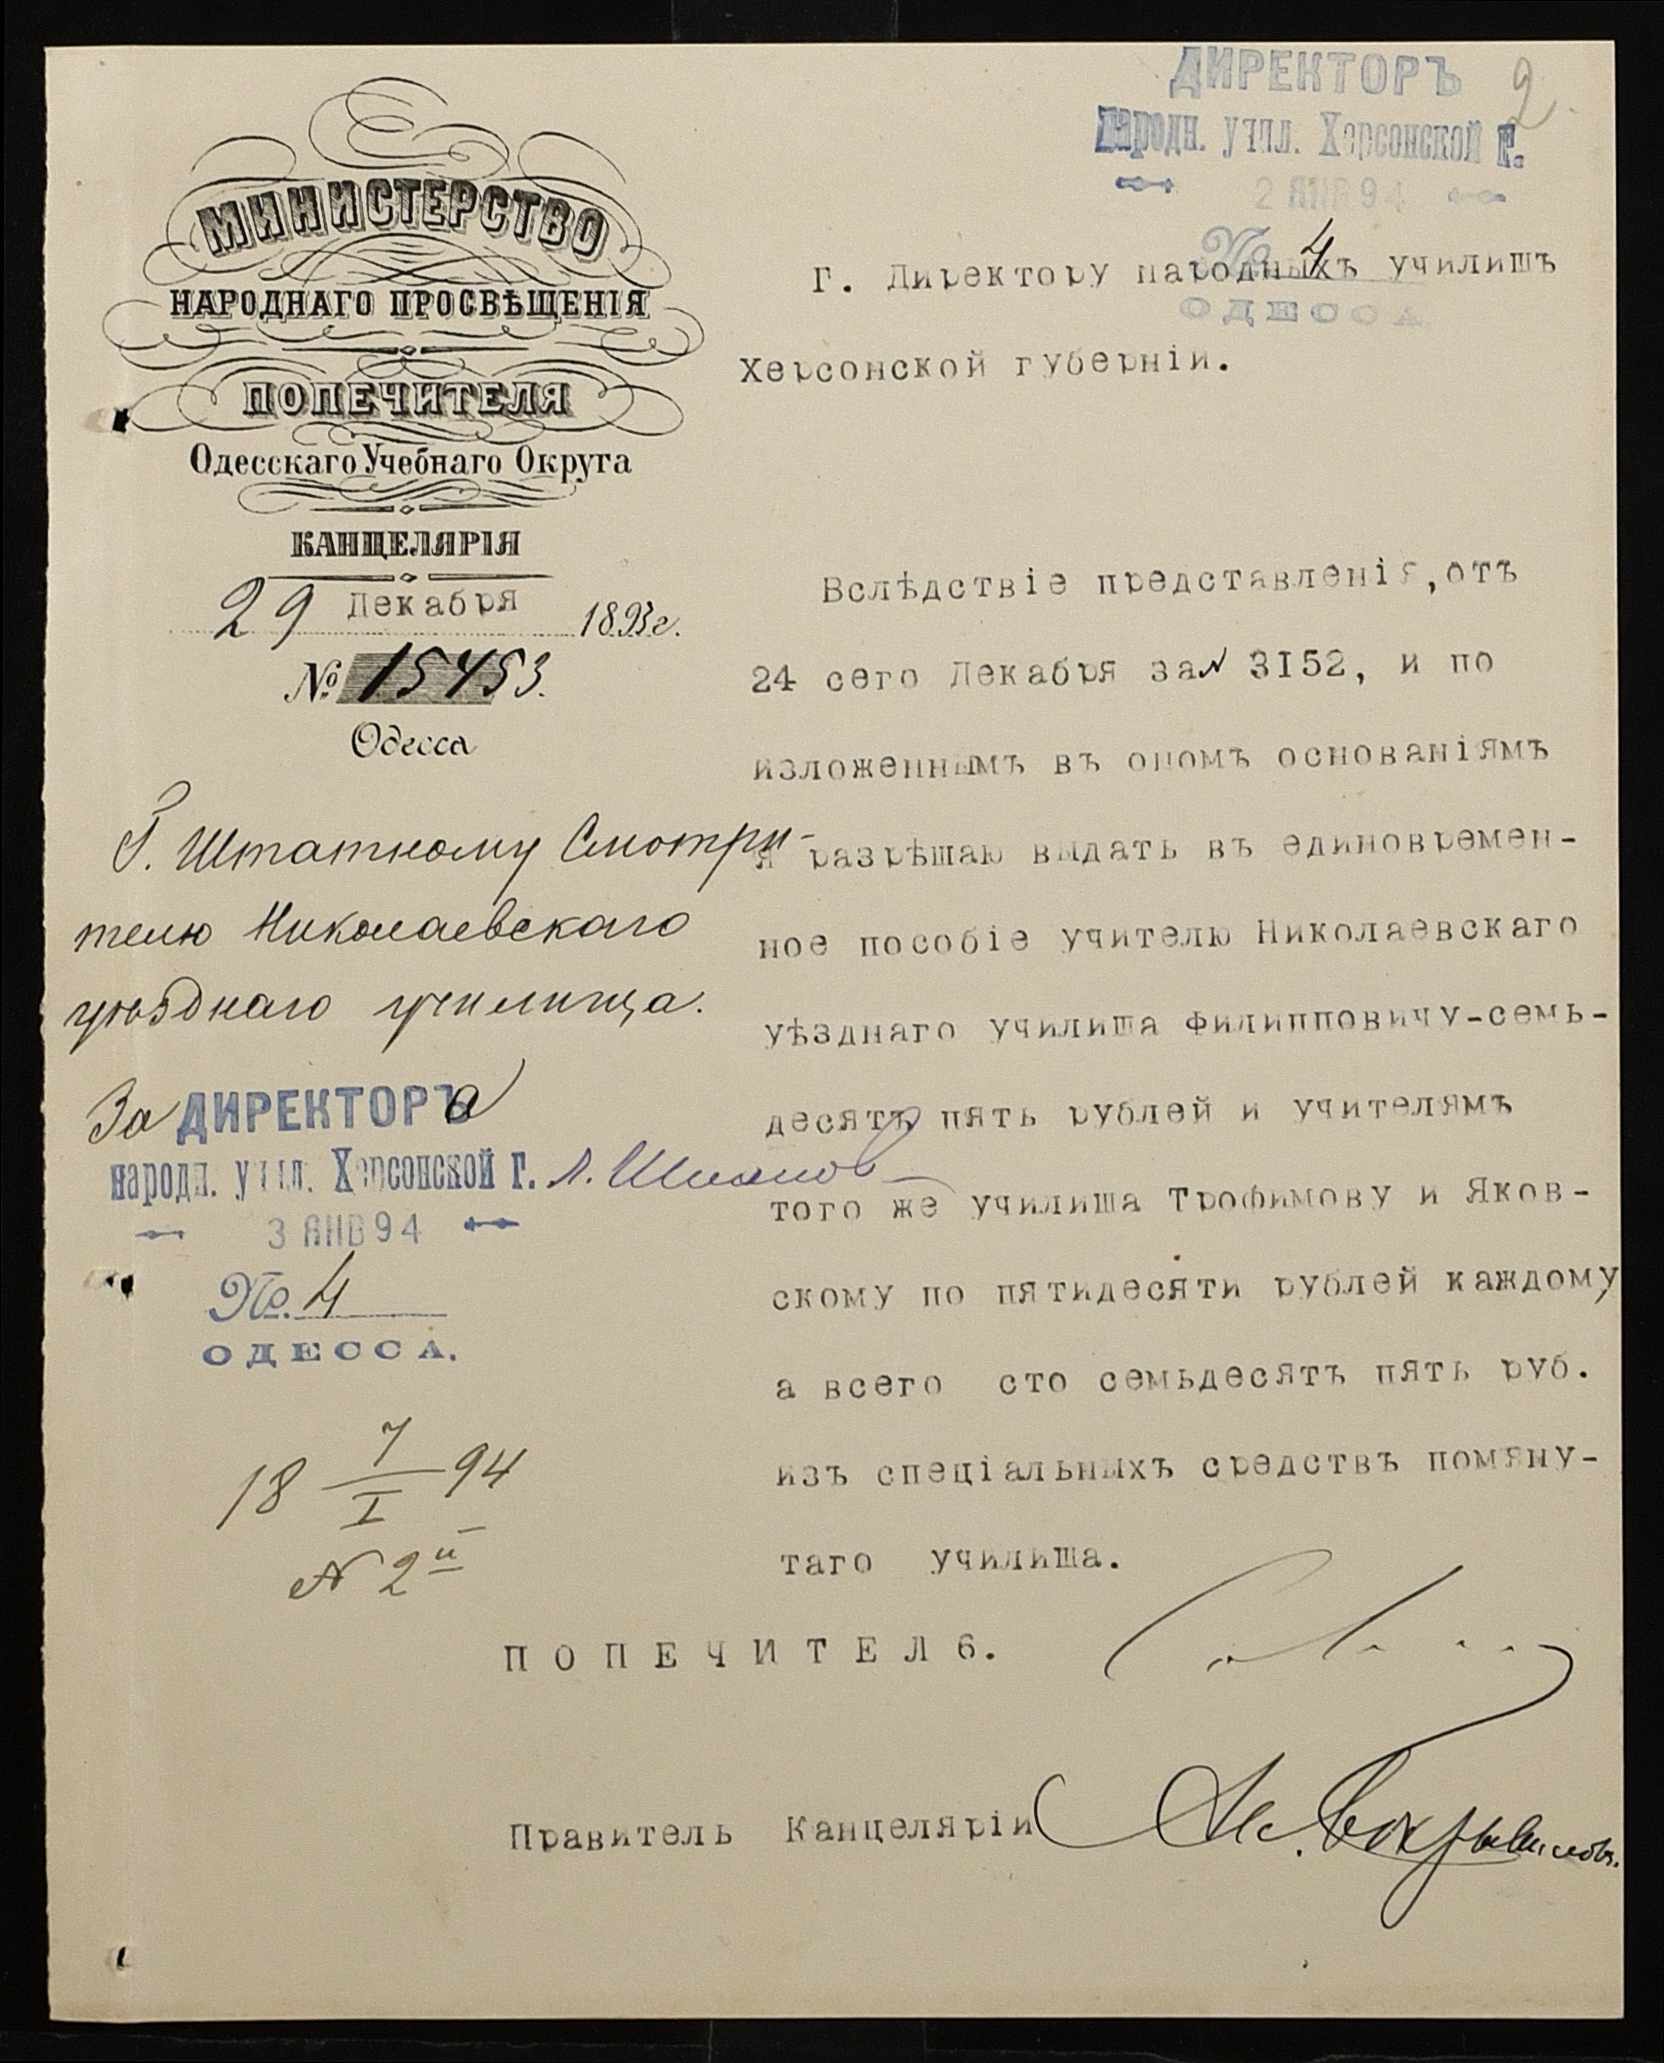 ДИРЕКТОРЪ
2.
народн. учил. Херсонской г.
2 ЯНВ 94
№ 4
ОДЕССА
МИНИСТЕРСТВО
НАРОДНАГО ПРОСВѢЩЕНІЯ
ПОПЕЧИТЕЛЯ
Одесскаго Учебнаго Округа
КАНЦЕЛЯРІЯ
29 Декабря 1893 г.
№ 15453.
Одесса
Г. Штатному Смотри-
телю Николаевскаго
уѣзднаго училища.
За ДИРЕКТОРа
народн. учил. Херсонской г.
3 ЯНВ 94
№. 4
ОДЕССА.
18 7/I 94
N 2й
Г. Директору народныхъ училишъ
Херсонской губерніи.
Вслѣдствіе представленія, отъ
24 сего Декабря за N 3I52, и по
изложеннымъ въ ономъ основаніямъ
я разрѣшаю выдать въ единовремен-
ное пособіе учителю Николаевскаго
уѣзднаго училиша Филипповичу-семь-
десятъ пять рублей и учителямъ
того же училиша Трофимову и Яков-
скому по пятидесяти рублей каждому
а всего сто семьдесятъ пять руб.
изъ спеціальныхъ средствъ помяну-
таго училиша.
ПОПЕЧИТЕЛ6.
Правитель Канцеляріи